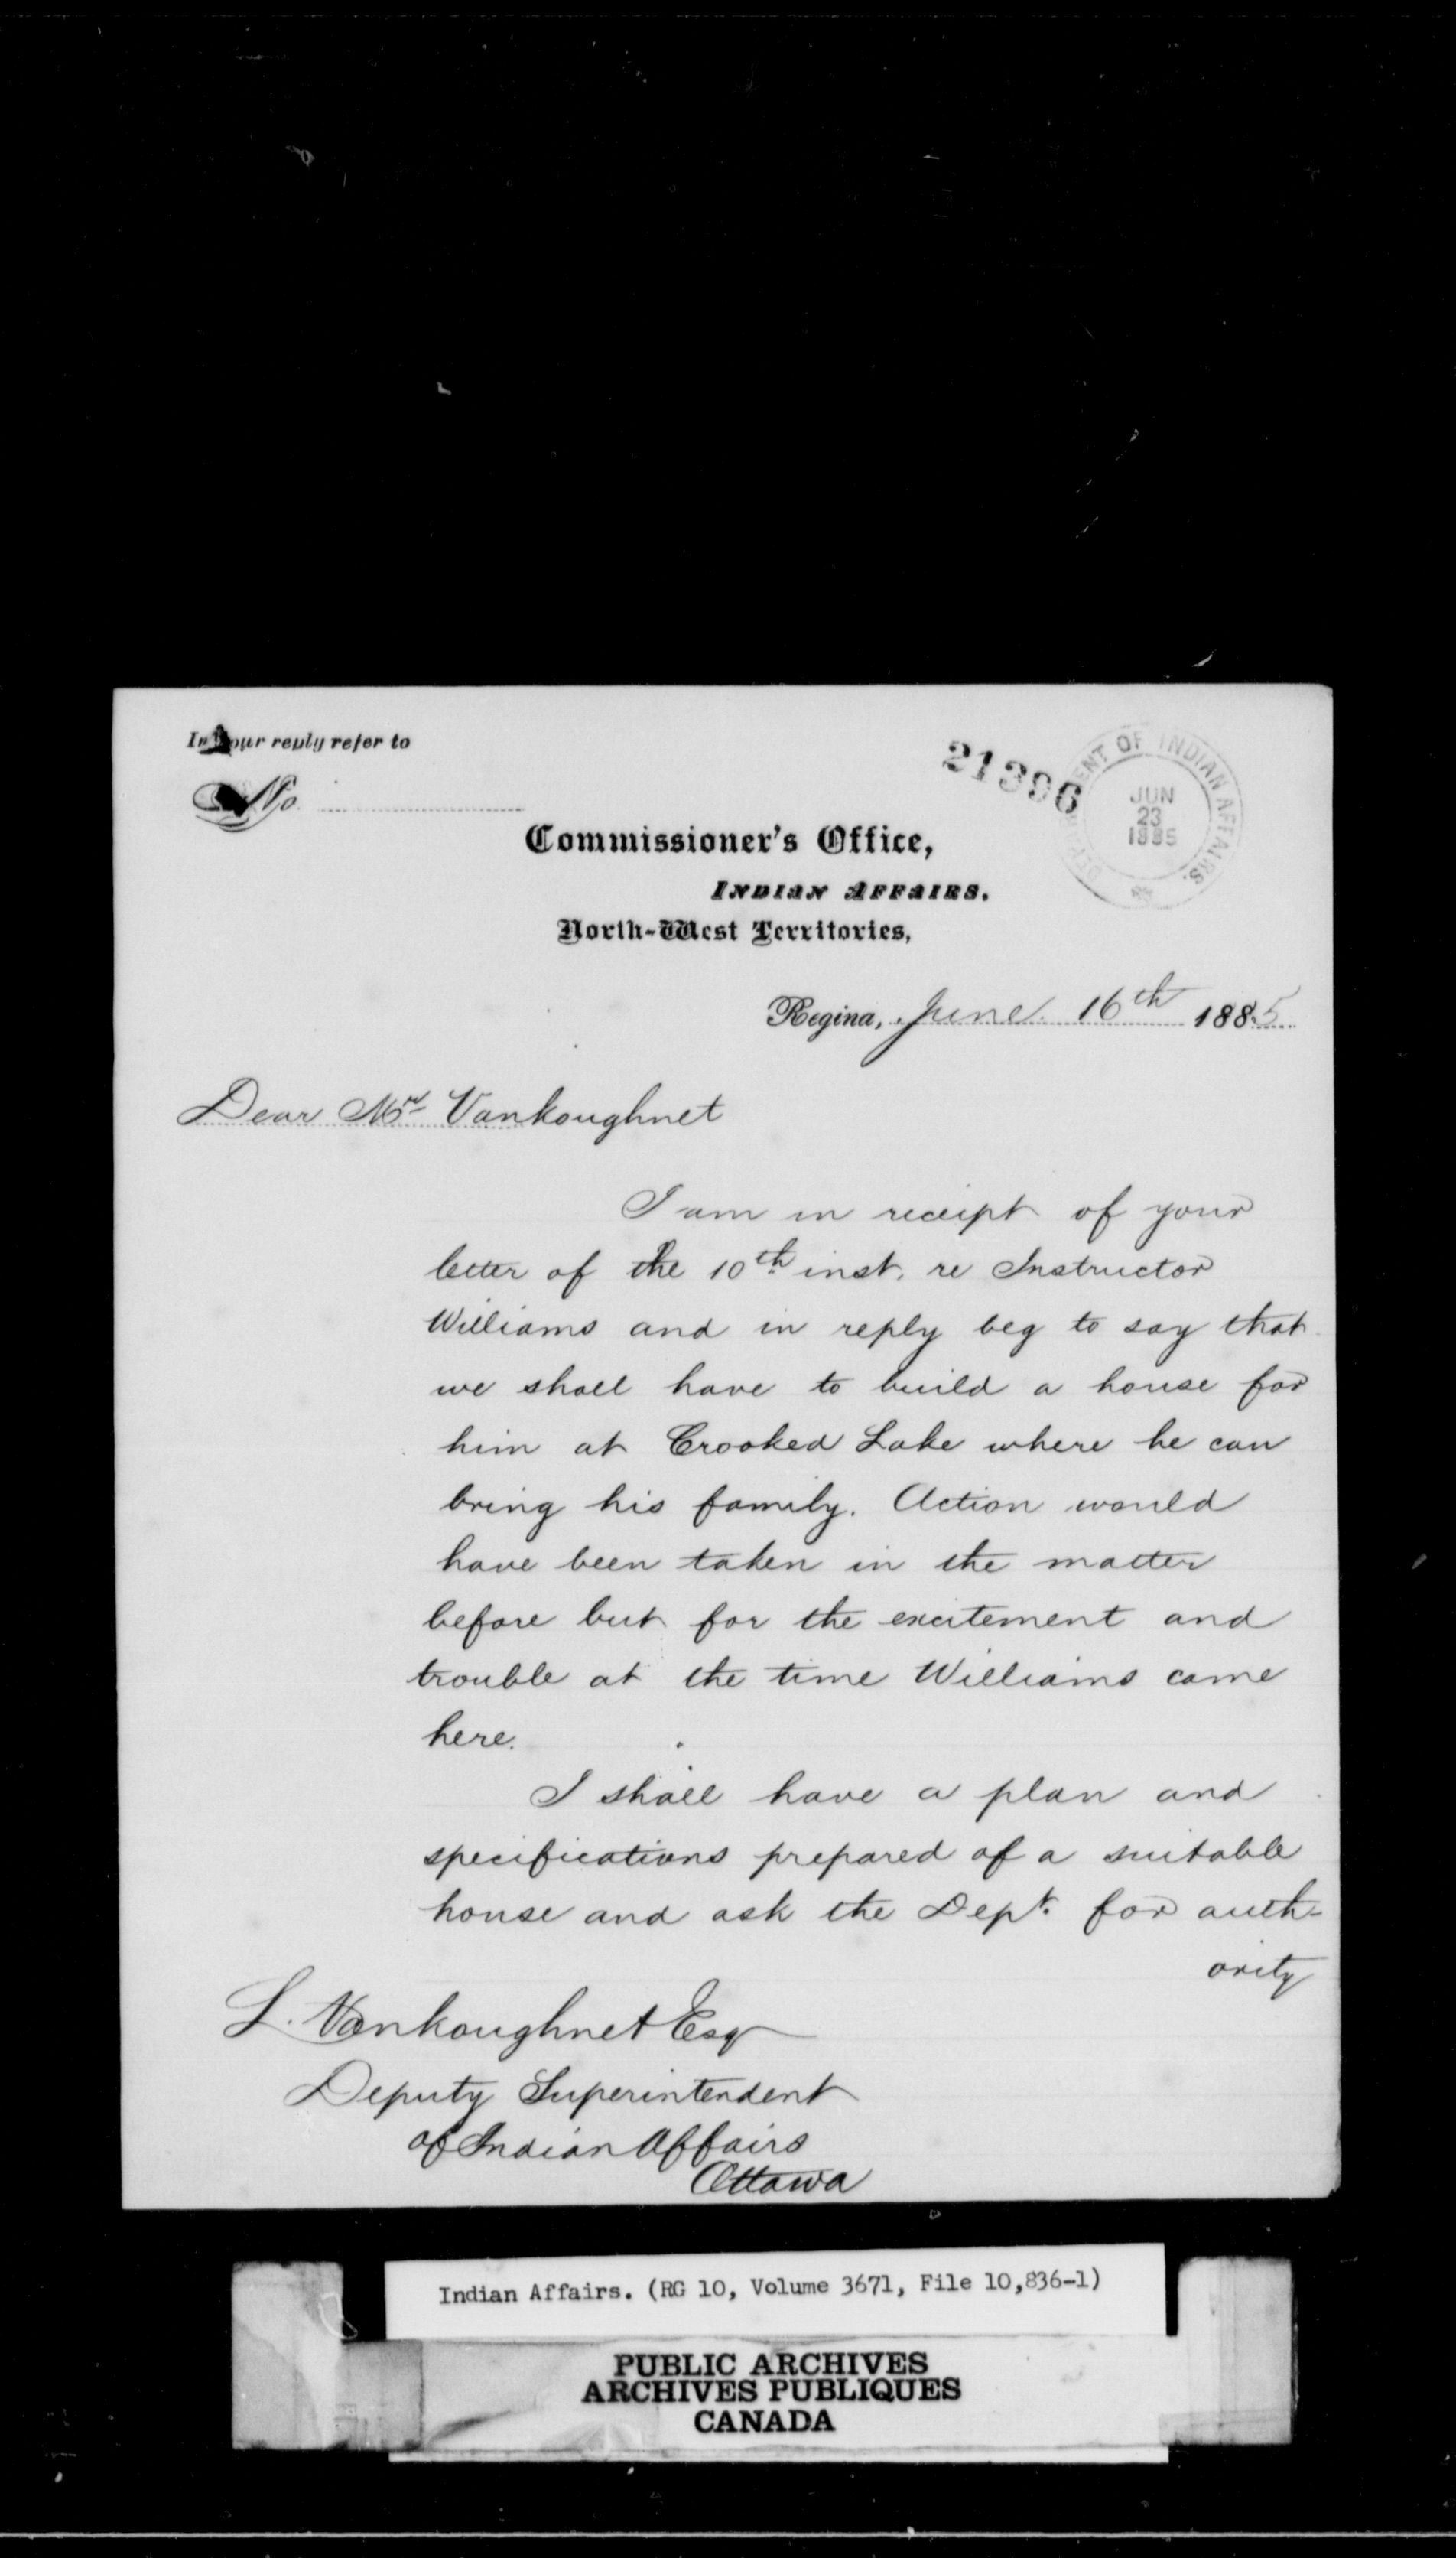 In your reply refer to
No.
21396
DEPARTMENT OF INDIAN AFFAIRS.
JUN
23
1885
Commissioner's Office,
INDIAN AFFAIRS.
North-West Territories,
Regina, June 16th 1885
Dear Mr Vankoughnet
I am in receipt of your
letter of the 10th inst. re Instructor
Williams and in reply beg to say that
we shall have to build a house for
him at Crooked Lake where he can
bring his family. Action would
have been taken in the matter
before but for the excitement and
trouble at the time Williams came
here.
I shall have a plan and
specifications prepared of a suitable
house and ask the Dept. for auth-
ority
L. Vankoughnet Esq
Deputy Superintendent
of Indian Affairs
Ottawa
Indian Affairs. (RG 10, Volume 3671, File 10,836-1)
PUBLIC ARCHIVES
ARCHIVES PUBLIQUES
CANADA